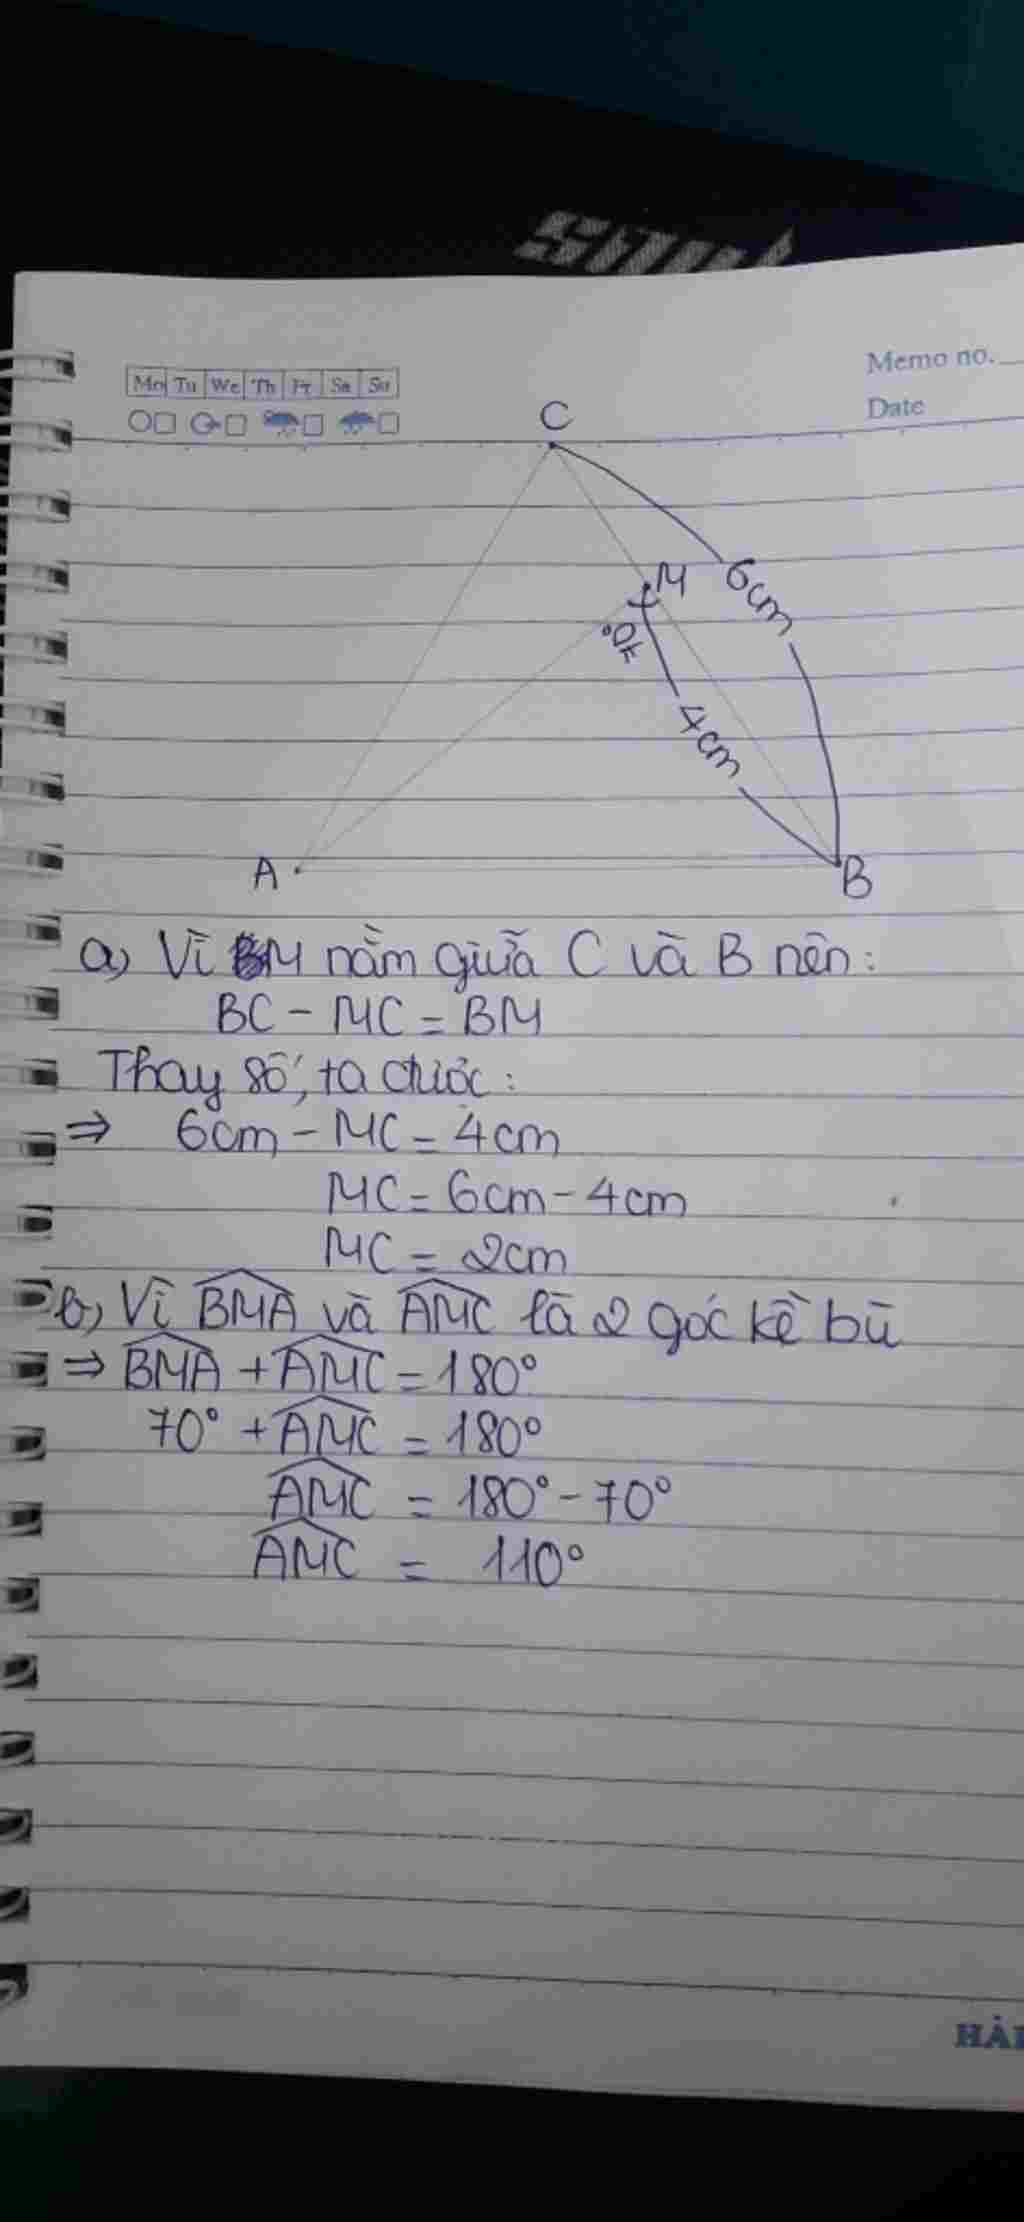 Mo Tu We Th Fr Sa Su
Memo no.
Date
C
M
6cm
70°
4cm
A
B
a) Vì M nằm giữa C và B nên:
BC - MC = BM
Thay số, ta được:
⇒ 6cm - MC = 4cm
MC = 6cm - 4cm
MC = 2cm
b) Vì BMA và AMC là 2 góc kề bù
⇒ BMA + AMC = 180°
70° + AMC = 180°
AMC = 180° - 70°
AMC = 110°